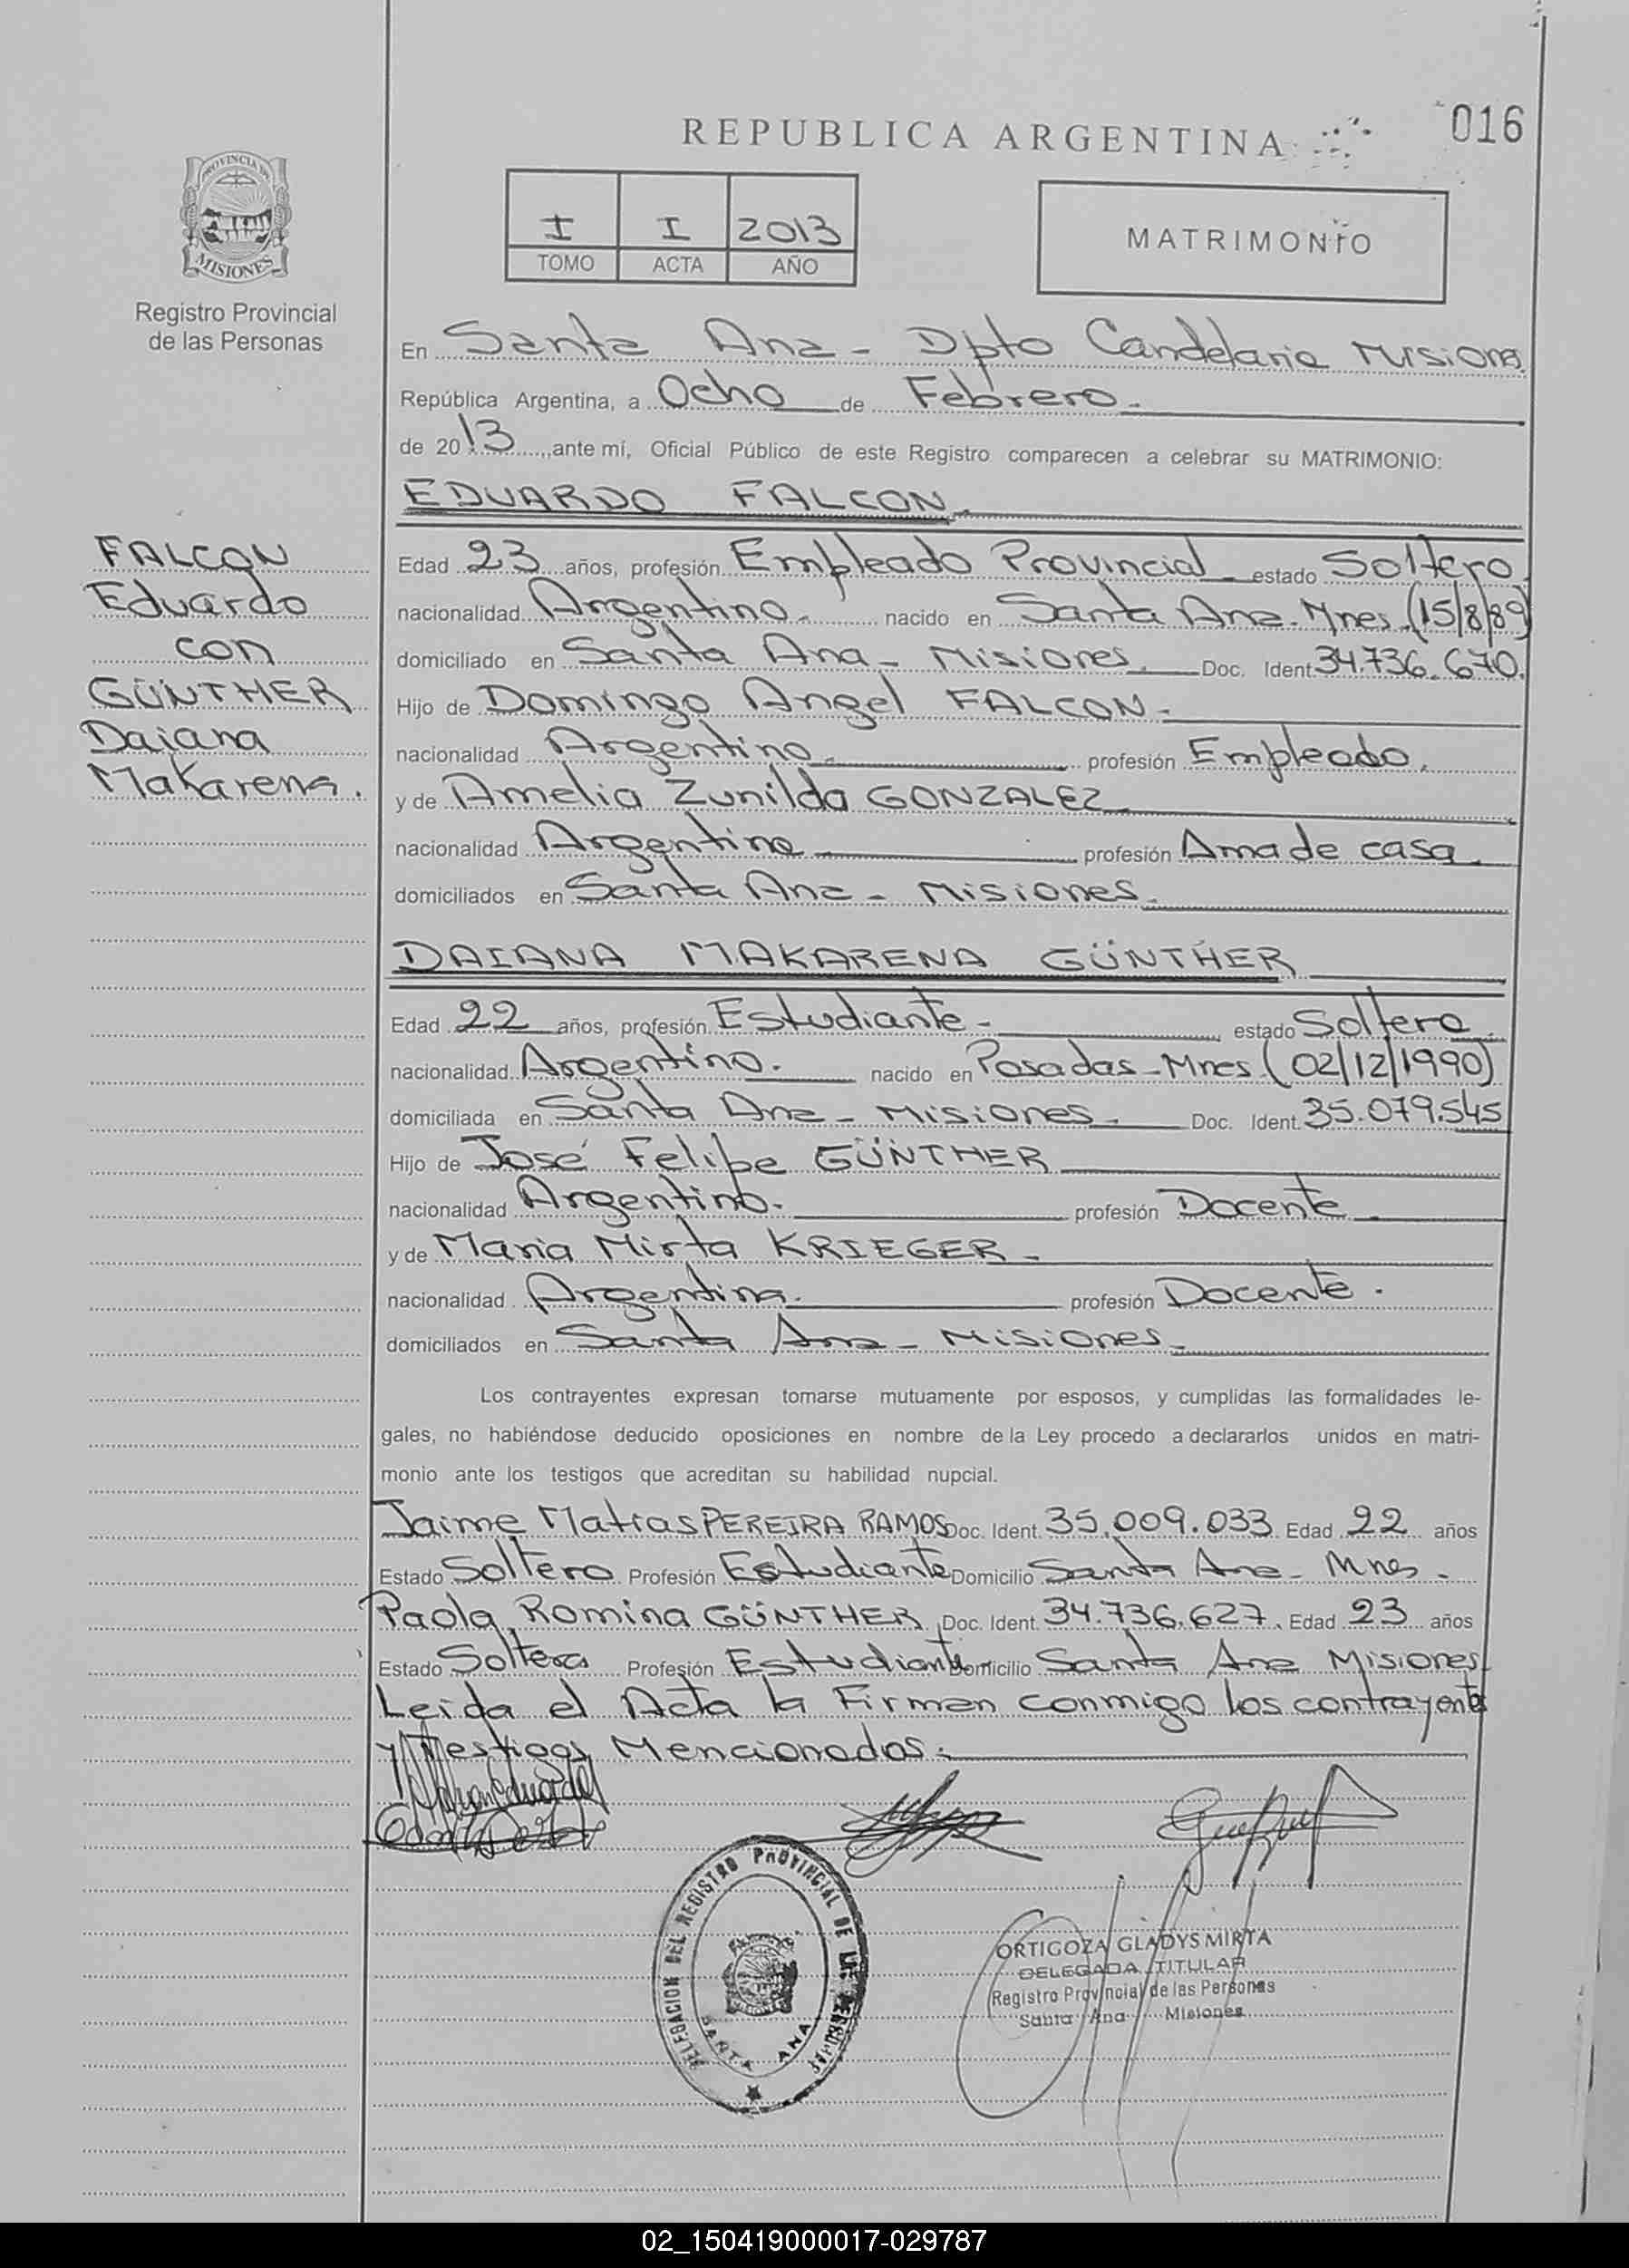 016
REPUBLICA ARGENTINA
PROVINCIA DE
MISIONES
Registro Provincial
de las Personas
I I 2013
TOMO ACTA AÑO
MATRIMONIO
En Santa Ana - Dpto Candelaria Misiones
República Argentina, a Ocho de Febrero.-
de 2013, ante mí, Oficial Público de este Registro comparecen a celebrar su MATRIMONIO:
EDUARDO FALCON.-
FALCON
Eduardo
con
GÜNTHER
Daiana
Makarena.
Edad 23 años, profesión Empleado Provincial estado Soltero.
nacionalidad Argentino. nacido en Santa Ana - Mnes. (15/8/89)
domiciliado en Santa Ana - Misiones. Doc. Ident. 34.736.670.
Hijo de Domingo Angel FALCON.-
nacionalidad Argentino. profesión Empleado.
y de Amelia Zunilda GONZALEZ
nacionalidad Argentina profesión Ama de casa.
domiciliados en Santa Ana - Misiones.
DAIANA MAKARENA GÜNTHER
Edad 22 años, profesión Estudiante.- estado Soltera.
nacionalidad Argentino. nacido en Posadas - Mnes (02/12/1990)
domiciliada en Santa Ana - Misiones. Doc. Ident. 35.079.545
Hijo de José Felipe GÜNTHER
nacionalidad Argentino. profesión Docente
y de Maria Mirta KRIEGER.-
nacionalidad Argentina. profesión Docente.
domiciliados en Santa Ana - Misiones.
Los contrayentes expresan tomarse mutuamente por esposos, y cumplidas las formalidades le-
gales, no habiéndose deducido oposiciones en nombre de la Ley procedo a declararlos unidos en matri-
monio ante los testigos que acreditan su habilidad nupcial.
Jaime Matias PEREIRA RAMOS Doc. Ident. 35.009.033 Edad 22 años
Estado Soltero Profesión Estudiante Domicilio Santa Ana - Mnes.
Paola Romina GÜNTHER Doc. Ident. 34.736.627. Edad 23 años
Estado Soltera Profesión Estudiante Domicilio Santa Ana Misiones
Leida el Acta la Firman conmigo los contrayentes
y Testigos Mencionados.
DELEGACION DEL REGISTRO PROVINCIAL DE LAS PERSONAS
SANTA ANA
ORTIGOZA GLADYS MIRTA
DELEGADA TITULAR
Registro Provincial de las Personas
Santa Ana Misiones
02_150419000017-029787